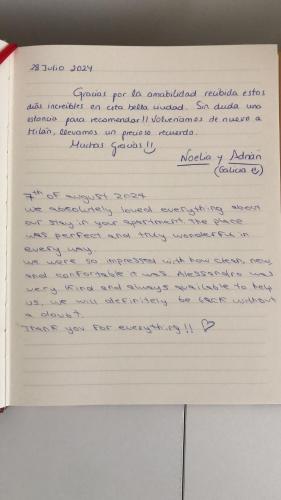 28 Julio 2024
Gracias por la amabilidad recibida estos
días increíbles en esta bella ciudad. Sin duda una
estancia para recomendar!! Volveríamos de nuevo a
Milán, llevamos un precioso recuerdo.
Muchas Gracias!!
Noelia y Adrián
(Galicia)
7th of august 2024
We absolutely loved everything about
our stay in your apartment. The place
was perfect and truly wonderful in
every way.
We were so impressed with how clean, new
and confortable it was. Alessandro was
very kind and always available to help
us, we will definitely be back without
a doubt.
Thank you for everything!! ♡